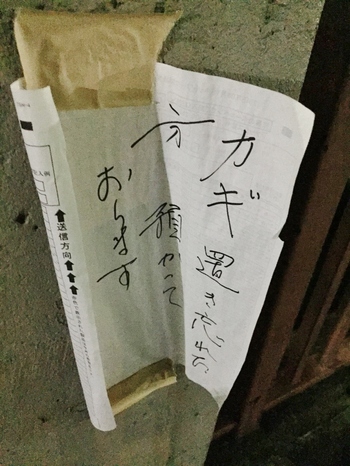 カギ置き忘れた
方預かって
おります
送信方向